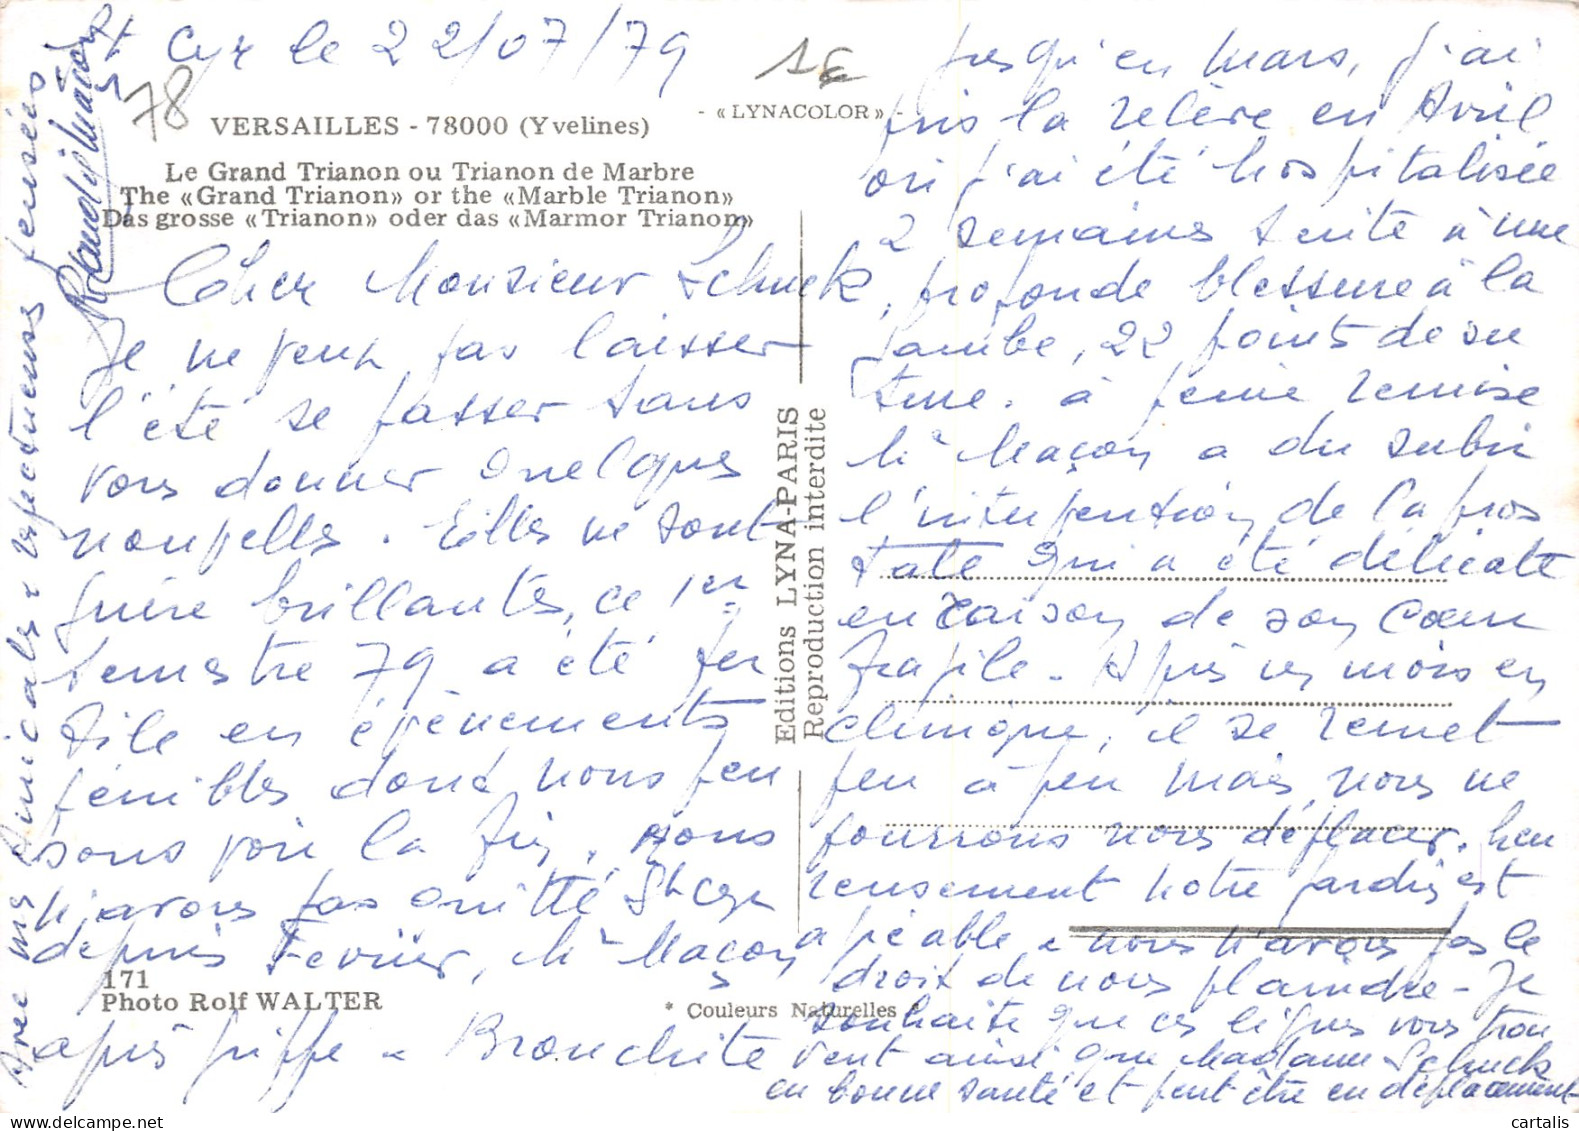 St Cyr le 22/07/79
78
1€
- «LYNACOLOR» -
VERSAILLES - 78000 (Yvelines)
Le Grand Trianon ou Trianon de Marbre
The «Grand Trianon» or the «Marble Trianon»
Das grosse «Trianon» oder das «Marmor Trianon»
Cher Monsieur Schuck,
Je ne peux pas laisser
l'été se passer sans
vous donner quelques
nouvelles. Elles ne sont
guère brillantes, ce 1er
semestre 79 a été fer
tile en évènements
pénibles dont nous pen
sons voir la fin. Nous
n'avons pas quitté St Cyr
depuis Février, Mr Maçon
après grippe & Bronchite
jusqu'en mars, j'ai
pris la relève en Avril
où j'ai été hospitalisée
2 semaines suite à une
profonde blessure à la
jambe, 22 points de su
ture. à peine remise
Mr Maçon a du subir
l'intervention de la pros
tate qui a été délicate
en raison de son Cœur
fragile. Après un mois en
clinique, il se remet
peu à peu mais nous ne
pourrons nous déplacer. heu
reusement notre jardin est
agréable & nous n'avons pas le
droit de nous plaindre - Je
souhaite que ces lignes vous trou
vent ainsi que Madame Schuck
en bonne santé et peut être en déplacement
Avec nos amicales & respectueuses pensées
Editions LYNA-PARIS
Reproduction interdite
171
Photo Rolf WALTER
* Couleurs Naturelles *
cartalis.com